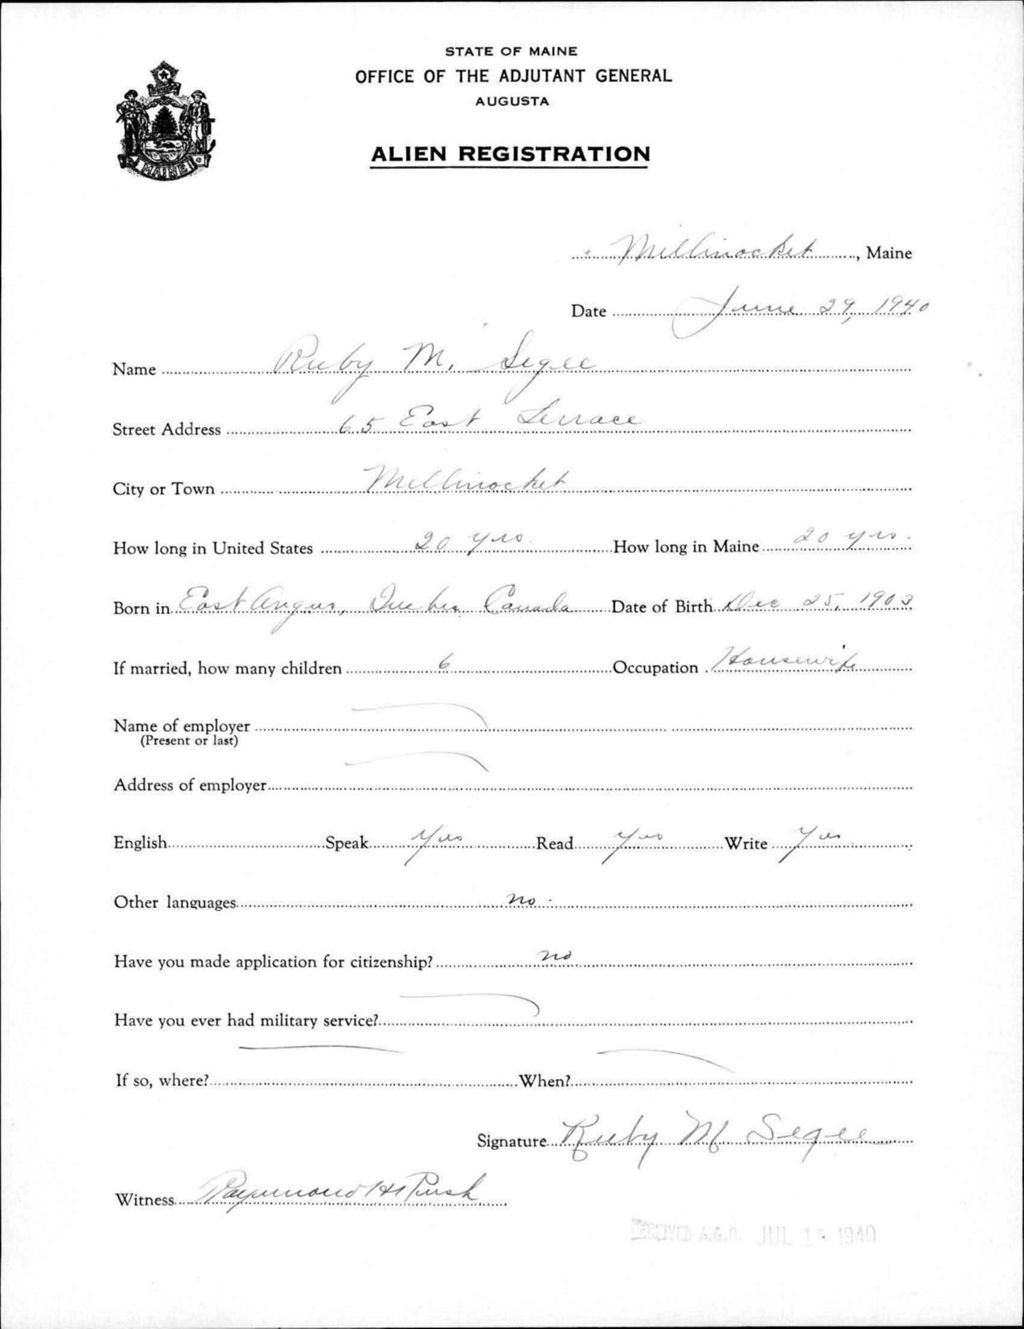 STATE OF MAINE
OFFICE OF THE ADJUTANT GENERAL
AUGUSTA
ALIEN REGISTRATION
MAINE
Millinocket, Maine
Date June 29, 1940
Name Ruby M. Segee
Street Address 65 East Terrace
City or Town Millinocket
How long in United States 20 yrs. How long in Maine 20 yrs.
Born in East Angus, Quebec Canada Date of Birth Dec 25, 1903
If married, how many children 6 Occupation Housewife
Name of employer
(Present or last)
Address of employer
English Speak Yes Read Yes Write Yes
Other languages no.
Have you made application for citizenship? no
Have you ever had military service?
If so, where? When?
Signature Ruby M Segee
Witness Raymond H Rush
RECEIVED A.G.O. JUL 1 1940